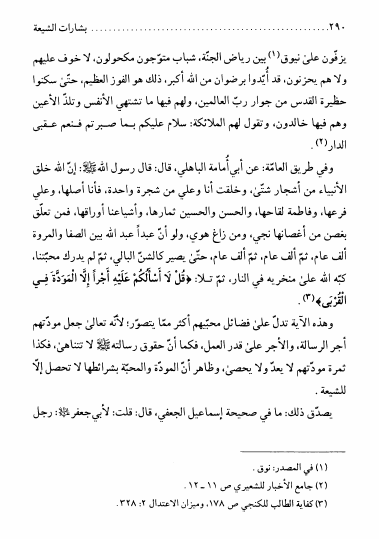 ٢٩٠ ................................................ بشارات الشيعة
يزفّون على نيوق(١) بين رياض الجنّة، شباب متوّجون مكحولون، لا خوف عليهم
ولا هم يحزنون، قد أُيّدوا برضوان من الله أكبر، ذلك هو الفوز العظيم، حتّى سكنوا
حظيرة القدس من جوار ربّ العالمين، ولهم فيها ما تشتهي الأنفس وتلذّ الأعين
وهم فيها خالدون، وتقول لهم الملائكة: سلام عليكم بما صبرتم فنعم عقبى
الدار(٢).
وفي طريق العامّة: عن أبي أُمامة الباهلي، قال: قال رسول الله ﷺ: إنّ الله خلق
الأنبياء من أشجار شتّى، وخلقت أنا وعلي من شجرة واحدة، فأنا أصلها، وعلي
فرعها، وفاطمة لقاحها، والحسن والحسين ثمارها، وأشياعنا أوراقها، فمن تعلّق
بغصن من أغصانها نجي، ومن زاغ هوي، ولو أنّ عبداً عبد الله بين الصفا والمروة
ألف عام، ثمّ ألف عام، ثمّ ألف عام، حتّى يصير كالشنّ البالي، ثمّ لم يدرك محبّتنا،
كبّه الله على منخريه في النار، ثمّ تلا: ﴿قُلْ لَا أَسْأَلُكُمْ عَلَيْهِ أَجْراً إِلَّا الْمَوَدَّةَ فِي
الْقُرْبَى﴾(٣).
وهذه الآية تدلّ على فضائل محبّيهم أكثر ممّا يتصوّر؛ لأنّه تعالى جعل مودّتهم
أجر الرسالة، والأجر على قدر العمل، فكما أنّ حقوق رسالته ﷺ لا تتناهى، فكذا
ثمرة مودّتهم لا يعدّ ولا يحصى، وظاهر أنّ المودّة والمحبّة بشرائطها لا تحصل إلّا
للشيعة.
يصدّق ذلك: ما في صحيحة إسماعيل الجعفي، قال: قلت: لأبي جعفر ؑ: رجل
(١) في المصدر: نوق.
(٢) جامع الأخبار للشعيري ص ١١ ـ ١٢.
(٣) كفاية الطالب للكنجي ص ١٧٨، وميزان الاعتدال ٢: ٣٢٨.